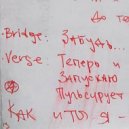 До те
Bridge: Забудь...
Verse: Теперь и
Запускаю
Пульсирует
как и ты я -